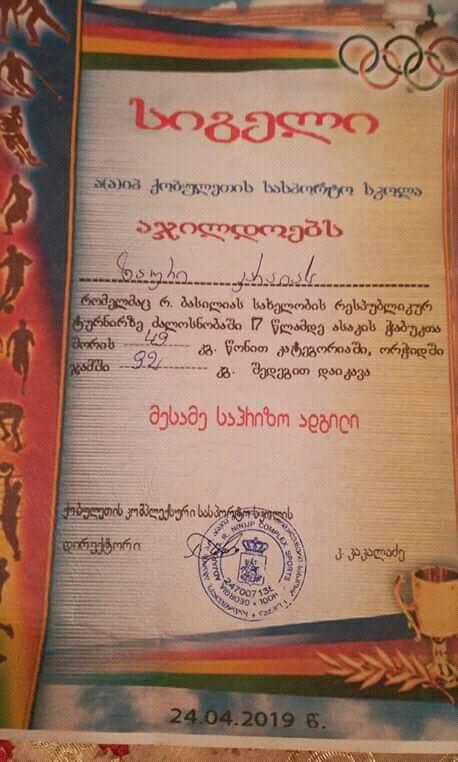 სიგელი
ა(ა)იპ ქობულეთის სასპორტო სკოლა
აჯილდოებს
ზაური
რომელმაც რ. ბასილიას სახელობის რესპუბლიკურ
ტურნირზე ძალოსნობაში 17 წლამდე ასაკის ჭაბუკთა
შორის 49 კგ. წონით კატეგორიაში, ორჭიდში
ჯამში 92 კგ. შედეგით დაიკავა
მესამე საპრიზო ადგილი
ქობულეთის კომპლექსური სასპორტო სკოლის
დირექტორი
კ. კაკალაძე
COMPLEX SPORTS
24700713
24.04.2019 წ.